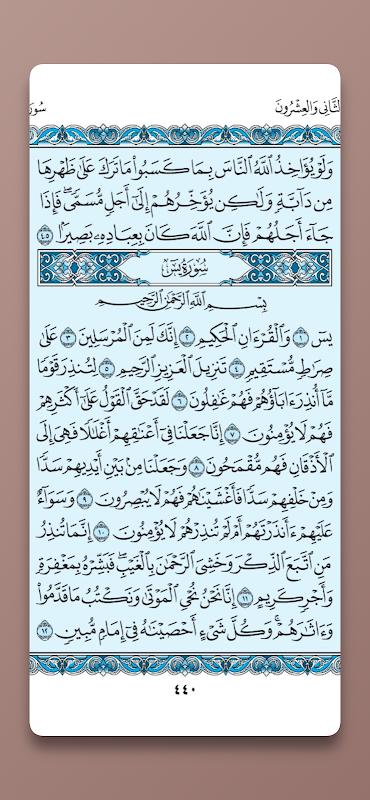 الثَّانِي وَالعِشْرُونَ
سُور
وَلَوْ يُؤَاخِذُ ٱللَّهُ ٱلنَّاسَ بِمَا كَسَبُوا۟ مَا تَرَكَ عَلَىٰ ظَهْرِهَا
مِن دَآبَّةٍ وَلَٰكِن يُؤَخِّرُهُمْ إِلَىٰٓ أَجَلٍ مُّسَمًّى ۖ فَإِذَا
جَآءَ أَجَلُهُمْ فَإِنَّ ٱللَّهَ كَانَ بِعِبَادِهِۦ بَصِيرًۢا ٤٥
سُورَةُ يسٓ
بِسْمِ ٱللَّهِ ٱلرَّحْمَٰنِ ٱلرَّحِيمِ
يسٓ ١ وَٱلْقُرْءَانِ ٱلْحَكِيمِ ٢ إِنَّكَ لَمِنَ ٱلْمُرْسَلِينَ ٣ عَلَىٰ
صِرَٰطٍ مُّسْتَقِيمٍ ٤ تَنزِيلَ ٱلْعَزِيزِ ٱلرَّحِيمِ ٥ لِتُنذِرَ قَوْمًا
مَّآ أُنذِرَ ءَابَآؤُهُمْ فَهُمْ غَٰفِلُونَ ٦ لَقَدْ حَقَّ ٱلْقَوْلُ عَلَىٰٓ أَكْثَرِهِمْ
فَهُمْ لَا يُؤْمِنُونَ ٧ إِنَّا جَعَلْنَا فِىٓ أَعْنَٰقِهِمْ أَغْلَٰلًا فَهِىَ إِلَى
ٱلْأَذْقَانِ فَهُم مُّقْمَحُونَ ٨ وَجَعَلْنَا مِنۢ بَيْنِ أَيْدِيهِمْ سَدًّا
وَمِنْ خَلْفِهِمْ سَدًّا فَأَغْشَيْنَٰهُمْ فَهُمْ لَا يُبْصِرُونَ ٩ وَسَوَآءٌ
عَلَيْهِمْ ءَأَنذَرْتَهُمْ أَمْ لَمْ تُنذِرْهُمْ لَا يُؤْمِنُونَ ١٠ إِنَّمَا تُنذِرُ
مَنِ ٱتَّبَعَ ٱلذِّكْرَ وَخَشِىَ ٱلرَّحْمَٰنَ بِٱلْغَيْبِ ۖ فَبَشِّرْهُ بِمَغْفِرَةٍ
وَأَجْرٍ كَرِيمٍ ١١ إِنَّا نَحْنُ نُحْىِ ٱلْمَوْتَىٰ وَنَكْتُبُ مَا قَدَّمُوا۟
وَءَاثَٰرَهُمْ ۚ وَكُلَّ شَىْءٍ أَحْصَيْنَٰهُ فِىٓ إِمَامٍ مُّبِينٍ ١٢
٤٤٠